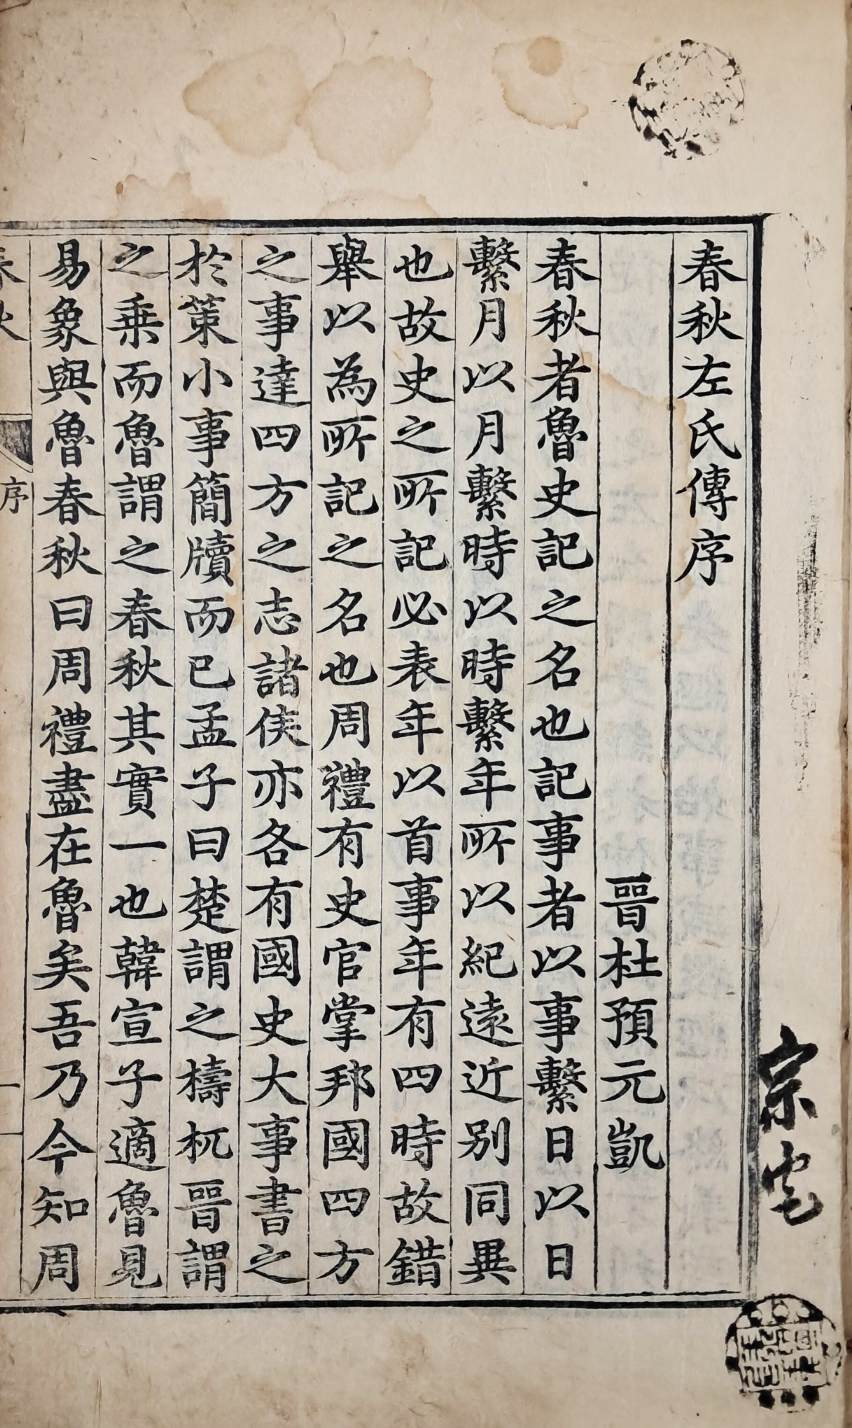 春秋左氏傳序
晉杜預元凱
春秋者魯史記之名也記事者以事繫日以日
繫月以月繫時以時繫年所以紀遠近別同異
也故史之所記必表年以首事年有四時故錯
舉以為所記之名也周禮有史官掌邦國四方
之事達四方之志諸侯亦各有國史大事書之
於策小事簡牘而已孟子曰楚謂之檮杌晉謂
之乗而魯謂之春秋其實一也韓宣子適魯見
易象與魯春秋曰周禮盡在魯矣吾乃今知周
春秋
序
一
宗宅